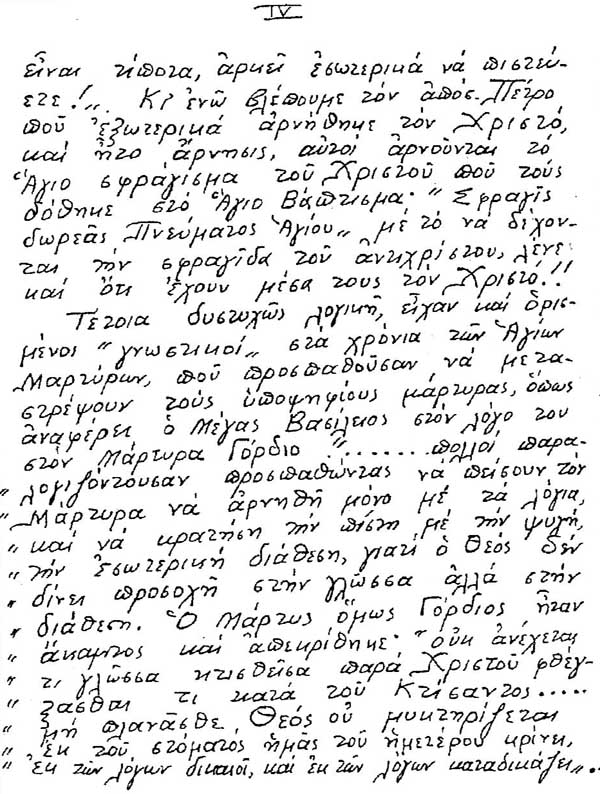 IV
εἶναι τίποτα, ἀρκεῖ ἐσωτερικά νά πιστεύ-
ετε!„ Κι ἐνῶ βλέπουμε τόν ἀπόσ. Πέτρο
πού ἐξωτερικά ἀρνήθηκε τόν Χριστό,
καί ἦτο ἄρνησις, αὐτοί ἀρνοῦνται τό
Ἅγιο σφράγισμα τοῦ Χριστοῦ πού τούς
δόθηκε στό Ἅγιο Βάπτισμα· "Σφραγίς
δωρεᾶς Πνεύματος Ἁγίου„ μέ τό νά δέχον-
ται τήν σφραγίδα τοῦ ἀντιχρίστου, λένε
καί ὅτι ἔχουν μέσα τους τόν Χριστό!!
Τέτοια δυστυχῶς λογική, εἶχαν καί ὁρισ-
μένος "γνωστικοί„ στά χρόνια τῶν Ἁγίων
Μαρτύρων, πού προσπαθοῦσαν νά μετα-
στρέψουν τούς ὑποψηφίους μάρτυρας, ὅπως
ἀναφέρει ὁ Μέγας Βασίλειος στόν λόγο του
στόν Μάρτυρα Γόρδιο "........πολλοί παρα-
„ λογιζόντουσαν προσπαθώντας νά πείσουν τόν
„ Μάρτυρα νά ἀρνηθῆ μόνο μέ τά λόγια,
„ καί νά κρατήση τήν πίστη μέ τήν ψυχή,
„ τήν ἐσωτερική διάθεση, γιατί ὁ Θεός δέν
„ δίνει προσοχή στήν γλῶσσα ἀλλά στήν
„ διάθεση. Ὁ Μάρτυς ὅμως Γόρδιος ἦταν
„ ἄκαμπτος καί ἀπεκρίθηκε· "οὐκ ἀνέχεται
„ τι γλῶσσα κτισθεῖσα παρά Χριστοῦ φθέγ-
„ ξασθαι τι κατά τοῦ Κτίσαντος.....
„ μή πλανᾶσθε, Θεός οὐ μυκτηρίζεται
„ ἐκ τοῦ στόματος ἡμᾶς τοῦ ἡμετέρου κρίνει,
„ ἐκ τῶν λόγων δικαιοῖ, καί ἐκ τῶν λόγων καταδικάζει„..